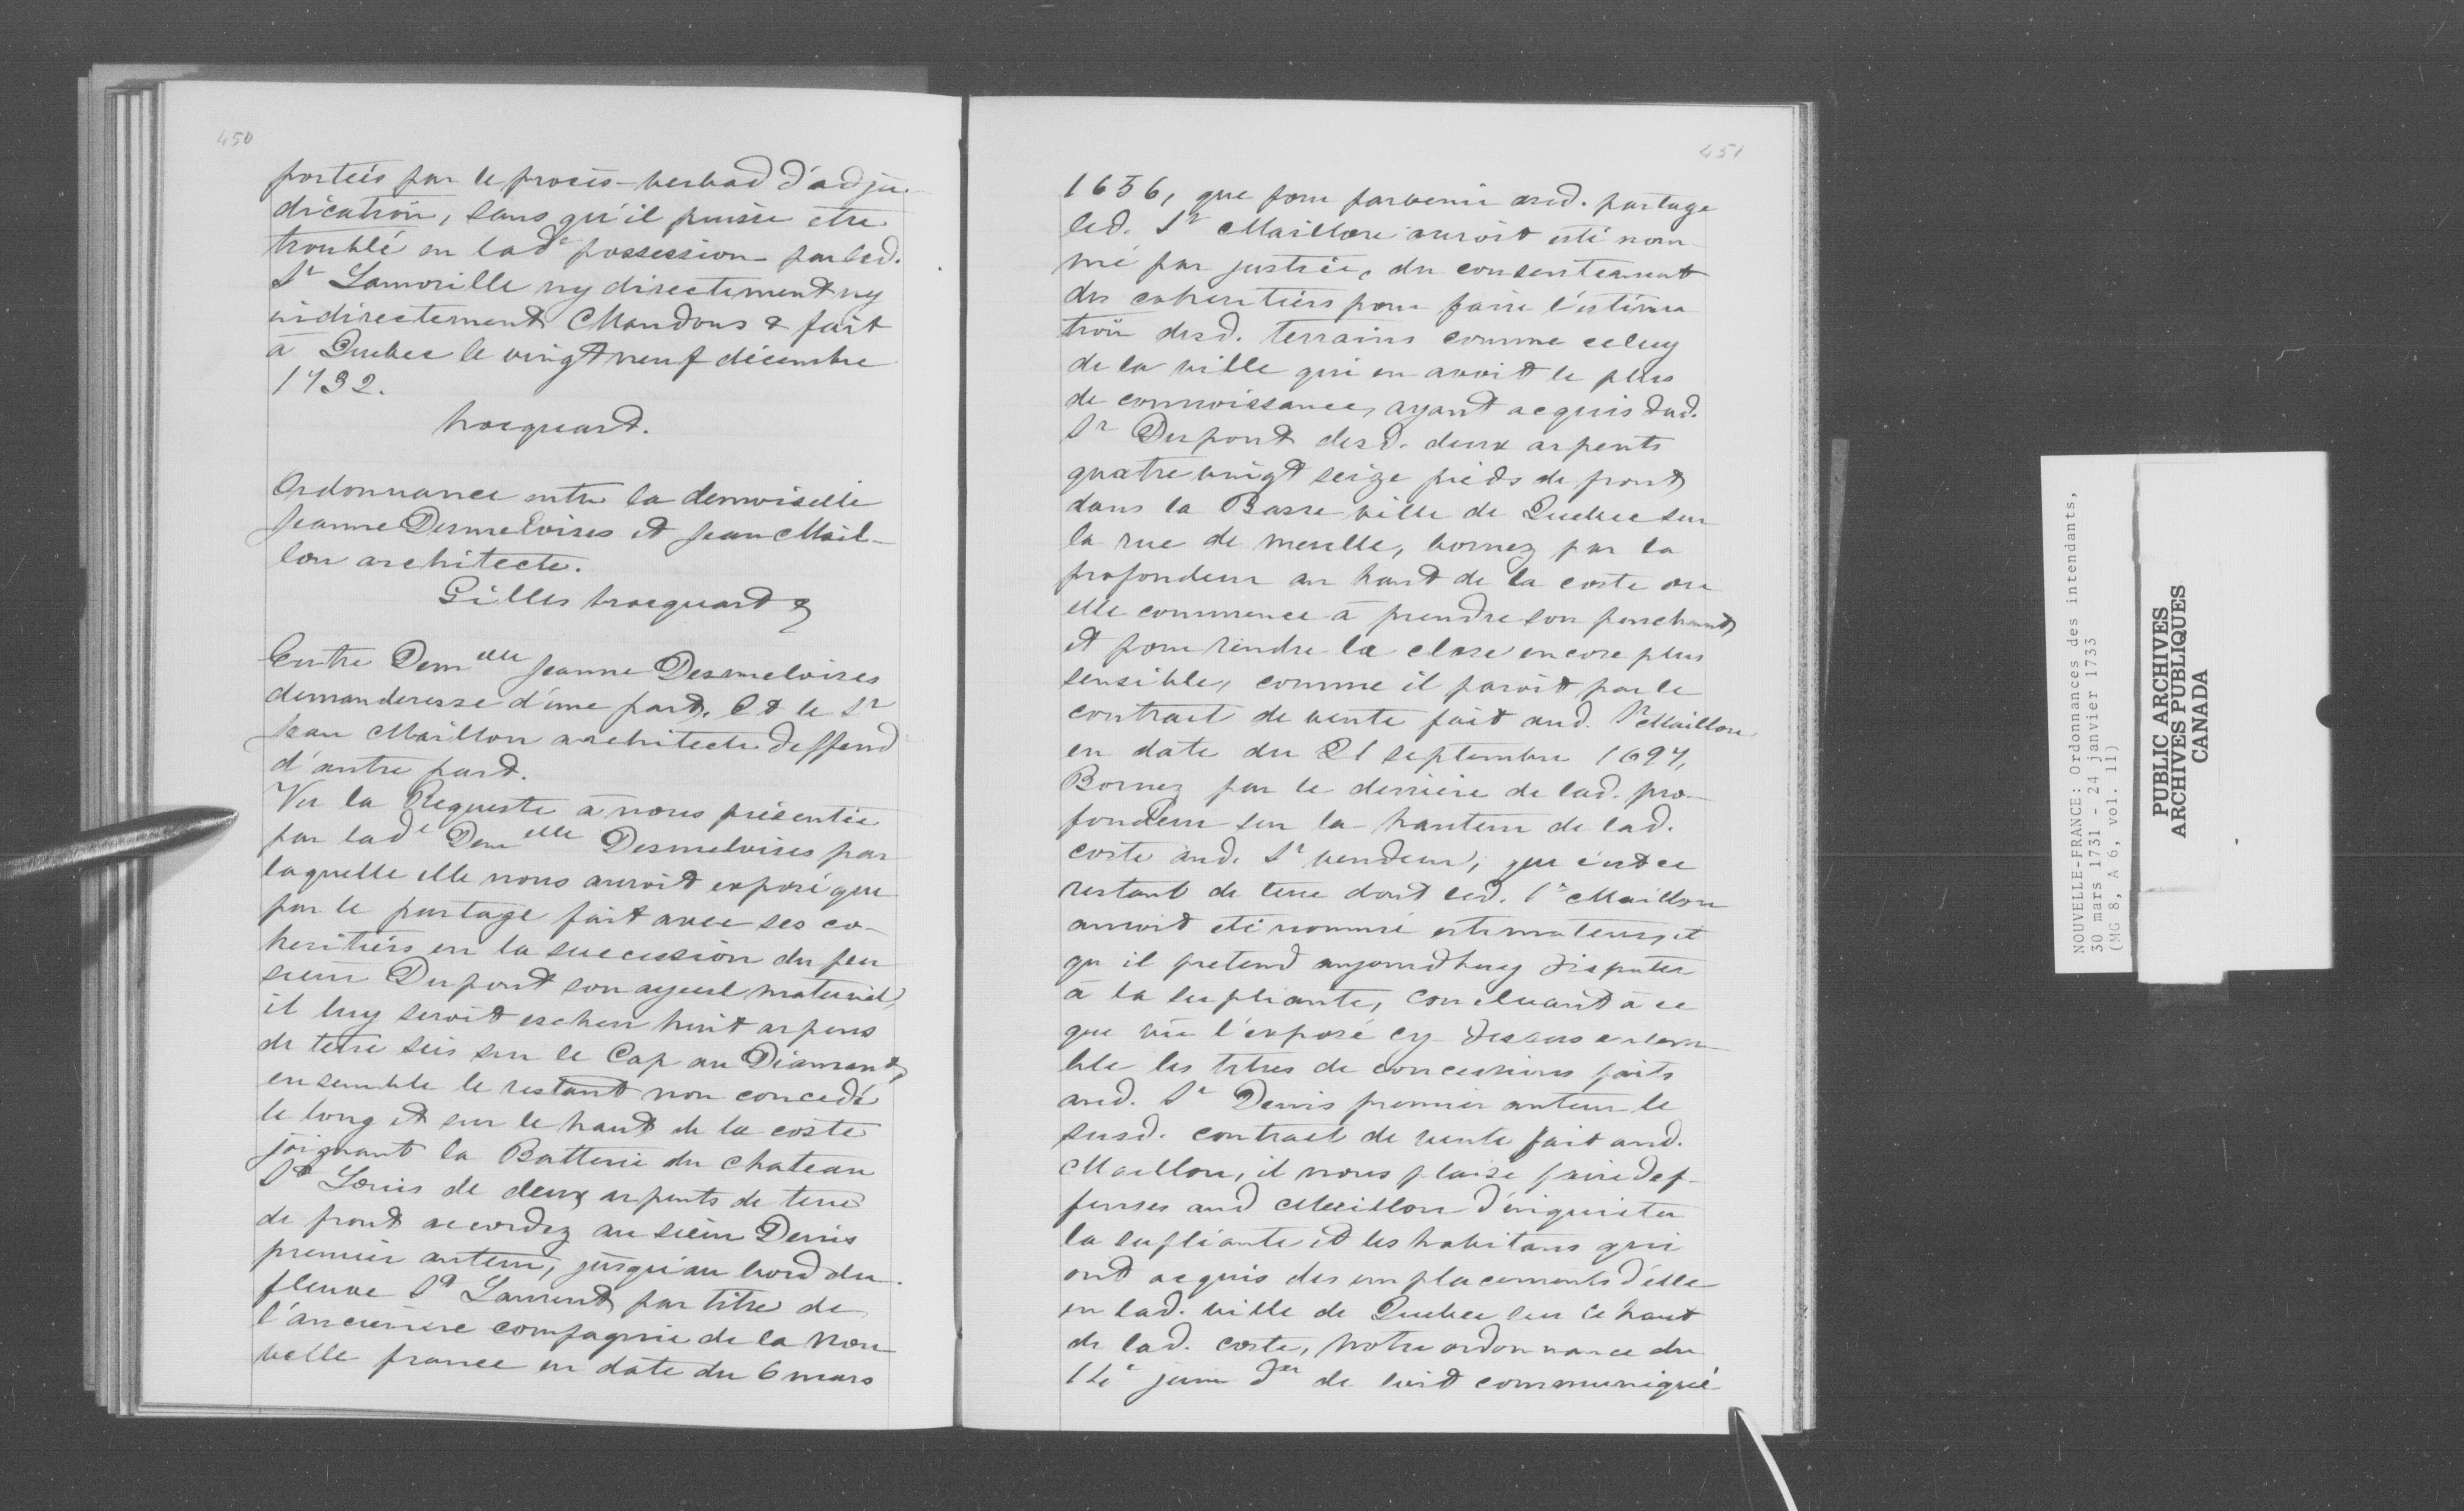 450
portées par le procès-verbad d'adju-
dication, sans qu'il puisse etre
troublé en lade possession par led.
Sr Lamorille ny directement ny
indirectement Mandons & fait
à Quebec le vingt neuf décembre
1732.
hocquart.
Ordonnance entre la demoiselle
Jeanne Desmeloises et Jean Mail-
lon architecte.
Gilles hocquart &
Entre Demelle Jeanne Desmeloises
demanderesse d'une part. Et le Sr
Jean Maillon architecte deffend
d'autre part.
Vu la Requeste à nous présentée
par lade Demelle Desmeloises par
laquelle elle nous auroit exposé que
par le partage fait avec ses co-
heritiers en la succession du feu
sieur Dupont son ayeul maternel,
il luy seroit eschen huit arpens
de terre seis sur le Cap au Diamant,
ensemble le restant non concedé
le long et sur le haut de la coste
joignant la Batterie du chateau
St Louis de deux arpents de terre
de front accordez au sieur Denis
premier auteur, jusqu'au bord du
fleuve St Laurent par titre de
l'ancienne compagnie de la Nou-
velle france en date du 6 mars
451
1656, que pour parvenir aud. partage
led. Sr Maillon auroit esté nom-
mé par justice, du consentement
des coheritiers pour faire l'estima
tion desd. terrains comme celuy
de la ville qui en avoit le plus
de connoissance, ayant acquis dud.
Sr Dupont desd. deux arpents
quatre vingt seize pieds de front
dans la Basse ville de Quebec sur
la rue de meulle, bornez par la
profondeur au haut de la coste ou
elle commence à prendre son penchant
et pour rendre la close encore plus
sensible, comme il paroit par le
contract de vente fait aud. Sr Maillon
en date du 21 septembre 1697,
Bornez par le derriere de lad. pro-
fondeur sur la hauteur de lad.
coste aud. Sr vendeur, que c'est ce
restant de terre dont led. Sr Maillon
auroit eté nommé estimateur, et
qu il pretend aujourdhuy disputer
à la supliante, concluant à ce
que vû l'exposé cy dessus ensem-
ble les titres de concessions faits
aud. Sr Denis premier auteur le
susd. contract de vente fait aud.
Maillon, il nous plaise faire def-
fenses aud Maillon d'inquieter
la supliante et les habitans qui
ont acquis des emplacements d'elle
en lad. ville de Quebec sur le haut
de lad. coste, Notre ordonnance du
14e juin der de soit communiqué
NOUVELLE-FRANCE: Ordonnances des intendants,
30 mars 1731 - 24 janvier 1733
(MG 8, A 6, vol. 11)
PUBLIC ARCHIVES
ARCHIVES PUBLIQUES
CANADA